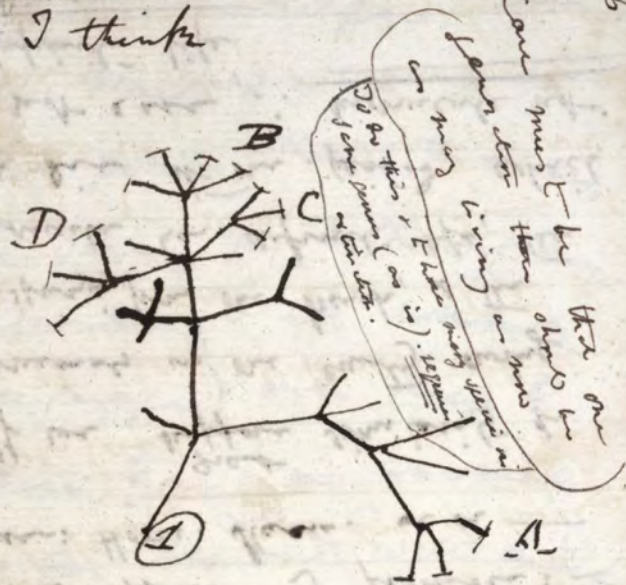 I think
case must be that one
generation then should be
as many living as now
To do this & to have many species in
same genus (as is). requires
extinction.
B
C
D
A
1